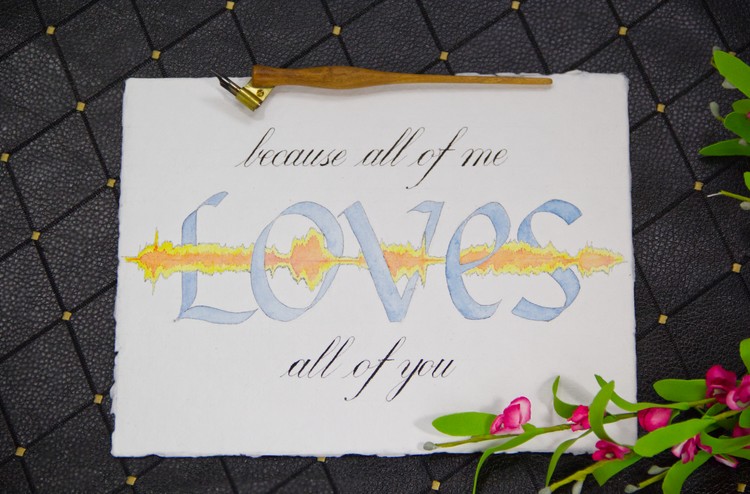 because all of me
Loves
all of you